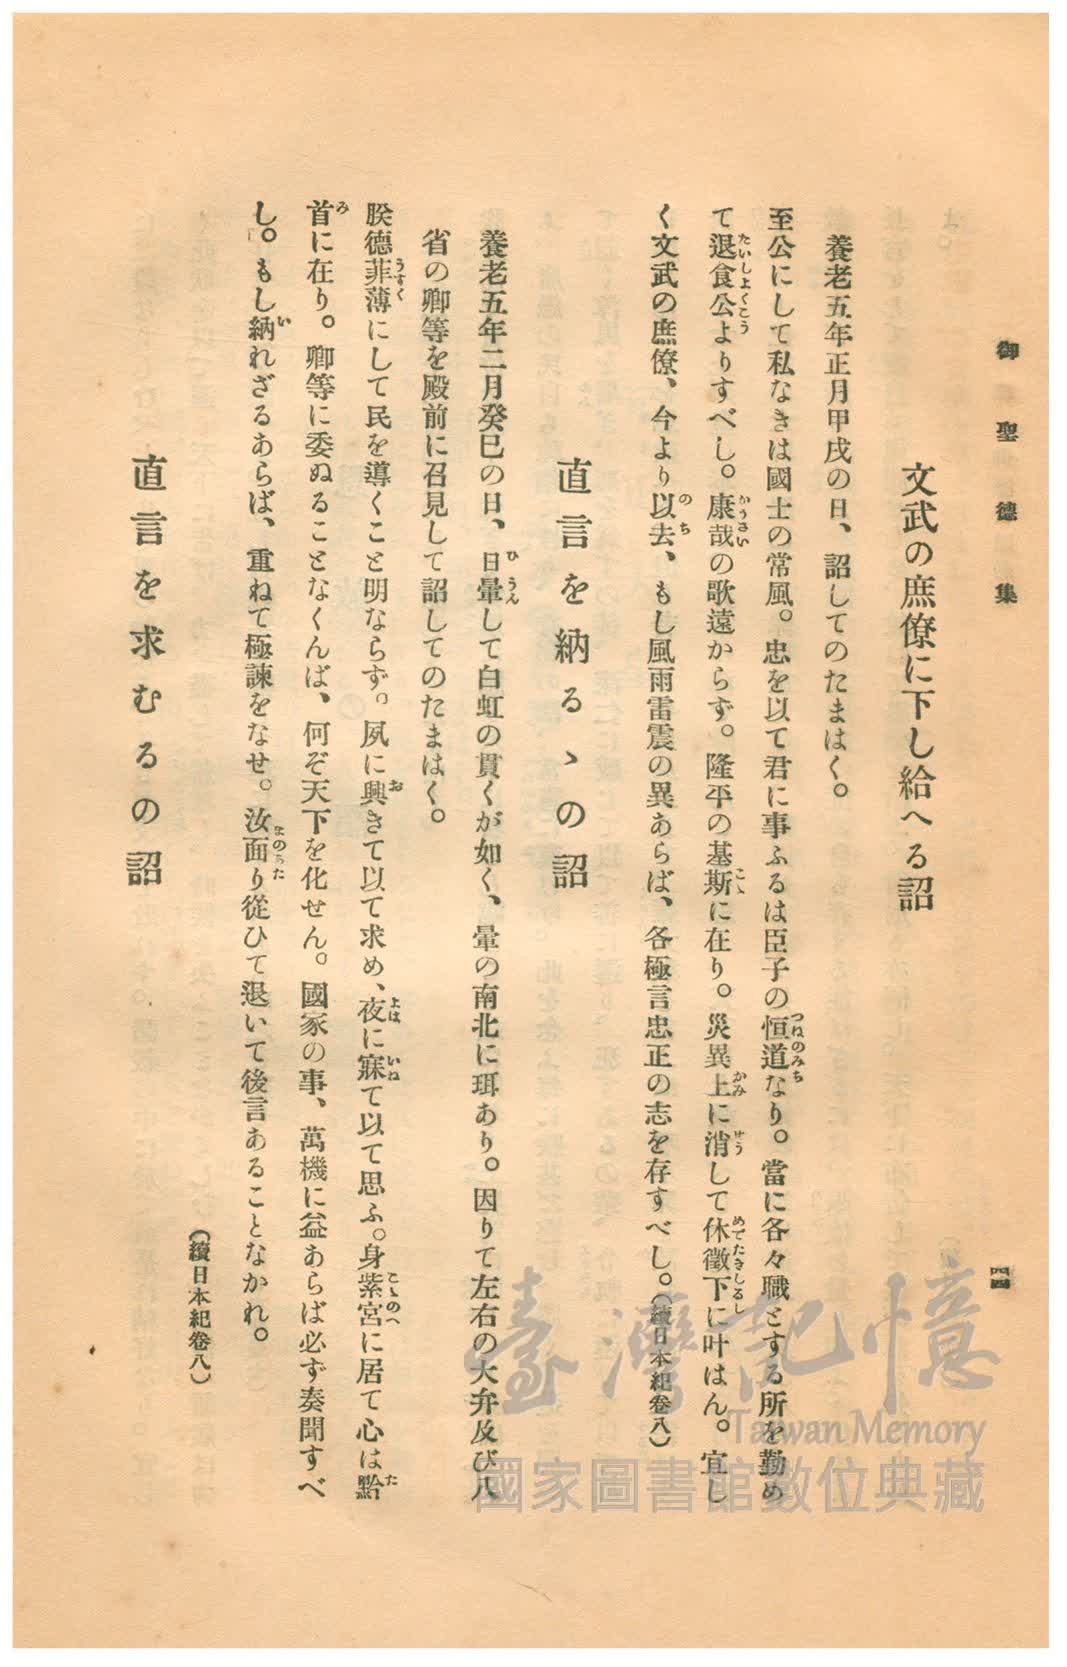 御聖德集
四四
文武の庶僚に下し給へる詔
養老五年正月甲戌の日、詔してのたまはく。
至公にして私なきは國士の常風。忠を以て君に事ふるは臣子の恒道なり。當に各々職とする所を勤め
て退食公よりすべし。康哉の歌遠からず。隆平の基斯に在り。災異上に消して休徵下に叶はん。宜し
く文武の庶僚、今より以去、もし風雨雷震の異あらば、各極言忠正の志を存すべし。(續日本紀卷八)
直言を納るゝの詔
養老五年二月癸巳の日、日暈して白虹の貫くが如く、暈の南北に珥あり。因りて左右の大弁及び八
省の卿等を殿前に召見して詔してのたまはく。
朕德菲薄にして民を導くこと明ならず。夙に興きて以て求め、夜に寐て以て思ふ。身紫宮に居て心は黔
首に在り。卿等に委ぬることなくんば、何ぞ天下を化せん。國家の事、萬機に益あらば必ず奏聞すべ
し。もし納れざるあらば、重ねて極諫をなせ。汝面り從ひて退いて後言あることなかれ。
(續日本紀卷八)
直言を求むるの詔
臺灣記憶
Taiwan Memory
國家圖書館數位典藏